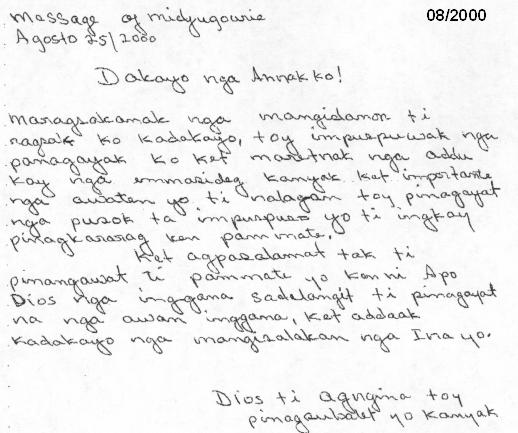 Message of midyugourie
08/2000
Agosto 25/2000
Dakayo nga Annak ko!
Maragsakanak nga mangidanon ti
ragsak ko kadakayo, toy impuspuwak nga
panagayak ko ket maretnak nga addu
kay nga immasideg kanyak ket importante
nga awaten yo ti nalagan toy pinagayat
nga pusok ta impuspuso yo ti ingkay
pinagkararag ken pammate.
Ket agpasalamat tak ti
pinangawat ti pammate yo kenni Apo
Dios nga inggana sadelangit ti pinagayat
na nga awan inggana, ket addaak
kadakayo nga mangisalakan nga Ina yo.
Dios ti agngina toy
pinagsubalet yo kanyak